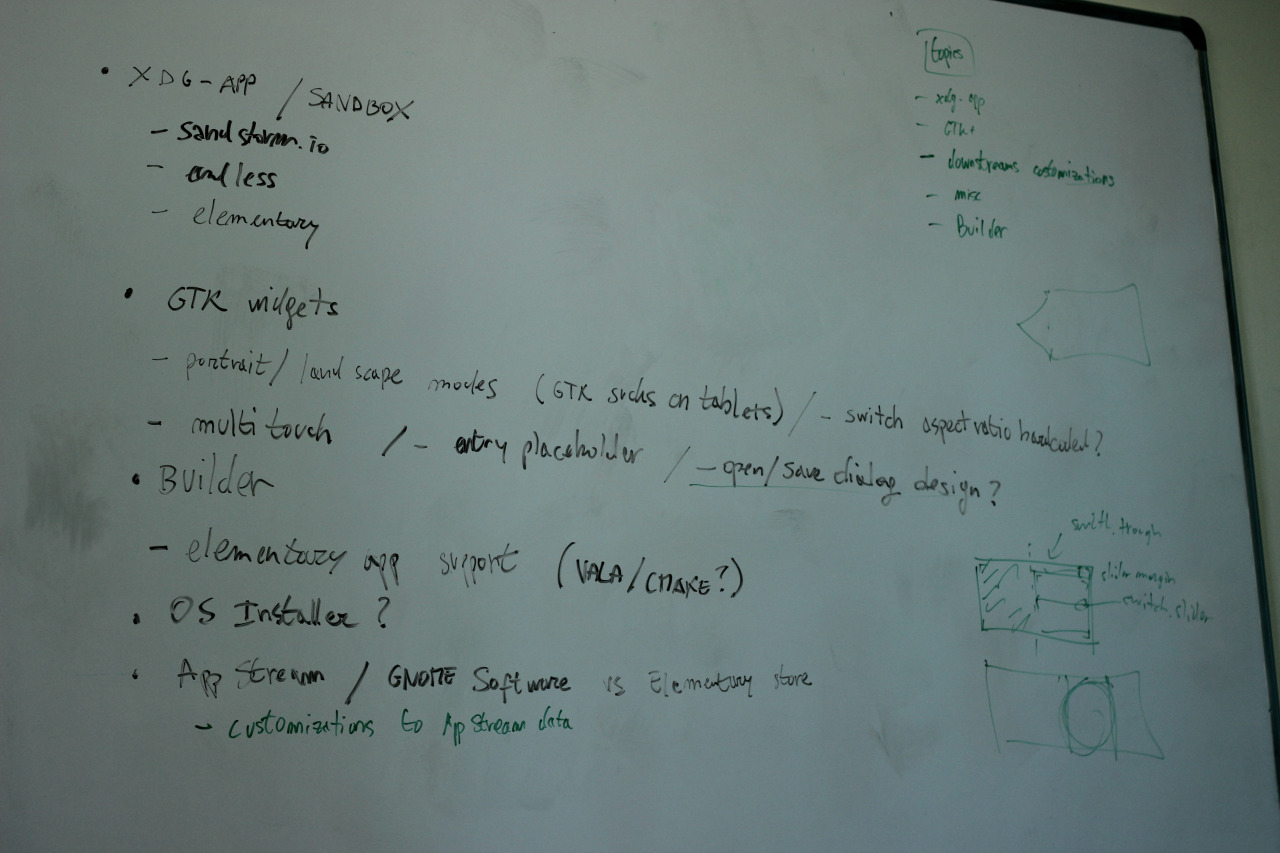 • XDG-APP / SANDBOX
- sandstorm.io
- endless
- elementary
• GTK widgets
- portrait/landscape modes (GTK sucks on tablets) / - switch aspect ratio hardcoded?
- multitouch / - entry placeholder / - open/save dialog design?
• Builder
- elementary app support (VALA/CMAKE?)
• OS Installer?
• AppStream / GNOME Software vs Elementary store
- customizations to AppStream data
topics
- xdg-app
- GTK+
- downstreams customizations
- misc
- Builder
switch.trough
slider margin
switch.slider